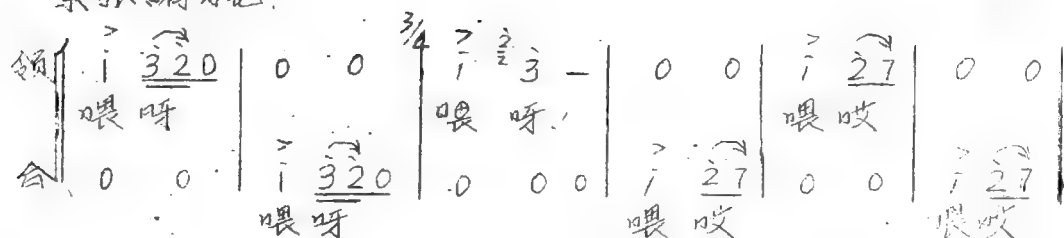 领 > i 3 2 0 | 0 0 | 3/4 > i 2 3 — | 0 0 | i 2 7 | 0 0 |
喂 呀 喂 呀. 喂 哎
合 0 0 | > i 3 2 0 | 0 0 0 | > i 2 7 | 0 0 | > i 2 7 |
喂 呀 喂 哎 喂 哎